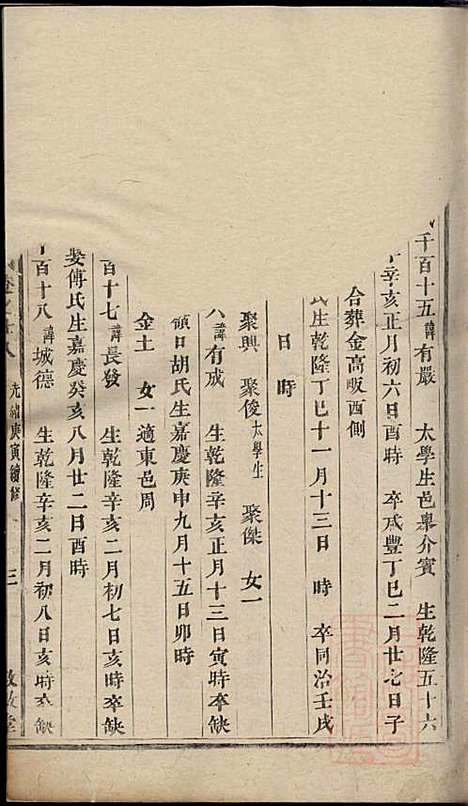 千百十五諱有嚴 太學生邑舉介賓 生乾隆五十六
辛亥正月初六日酉時 卒咸豐丁巳二月廿七日子
合葬金高畈酉側
氏生乾隆丁巳十一月十三日 時 卒同治壬戌
日 時
聚興 聚俊太學生 聚傑 女一
六諱有成 生乾隆辛亥正月十三日寅時卒缺
領口胡氏生嘉慶庚申九月十五日卯時
金土 女一適東邑周
百十七諱長發 生乾隆辛亥二月初七日亥時卒缺
娶傅氏生嘉慶癸亥八月廿二日酉時
百十八諱城德 生乾隆辛亥二月初八日亥時卒缺
光緒庚寅續修 三